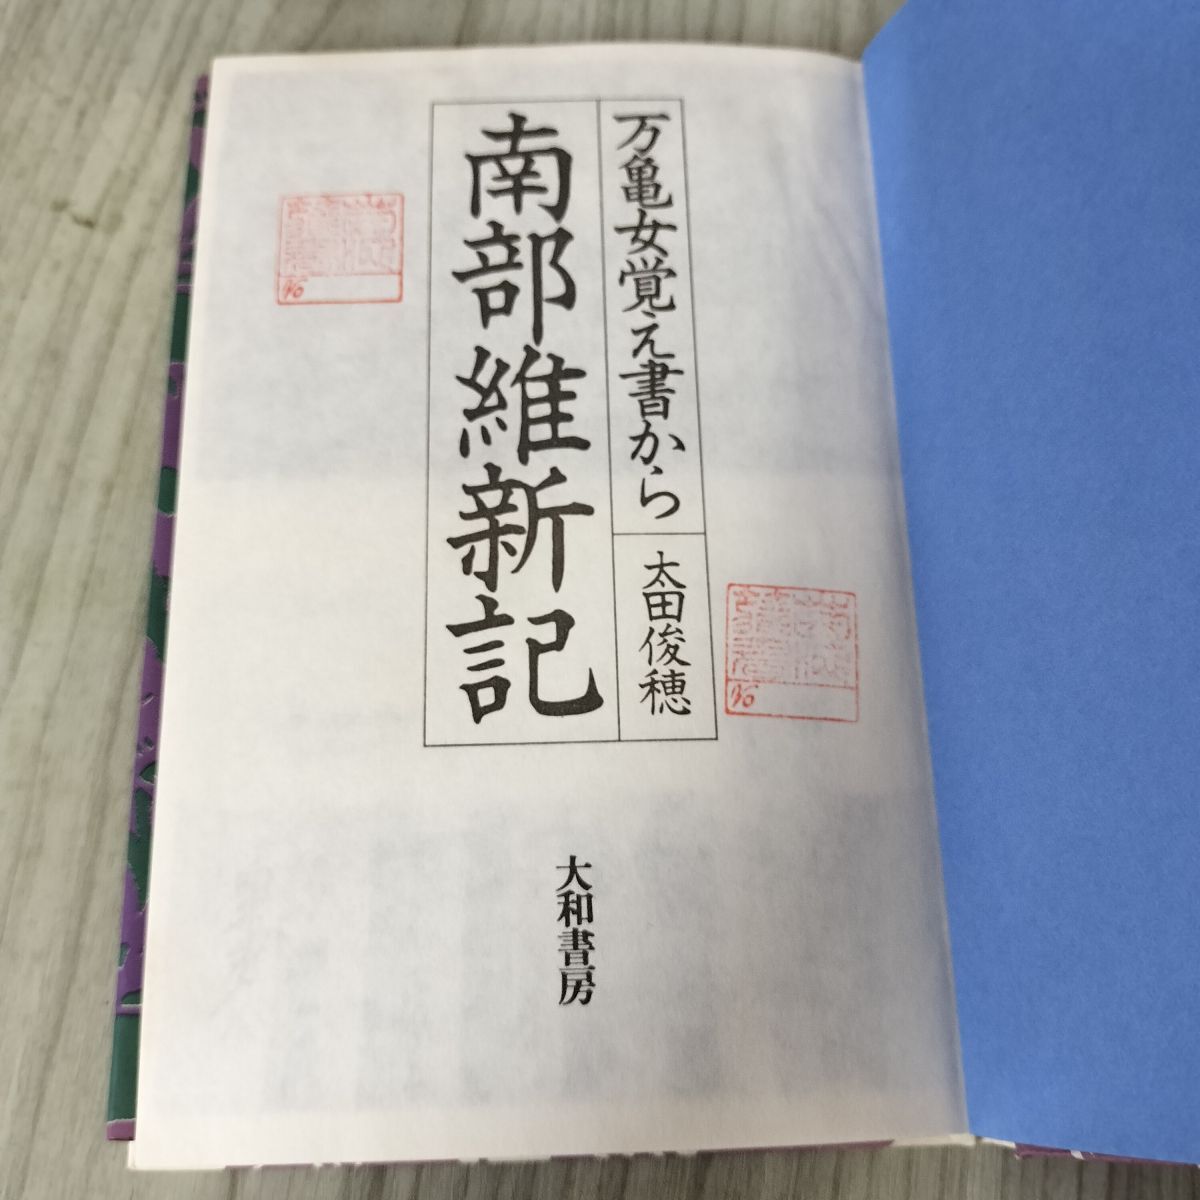 万亀女覚え書から
太田俊穂
南部維新記
大和書房